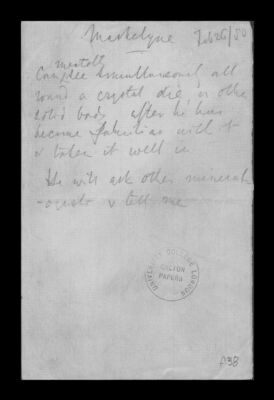 Maskelyne Feb 26/80
mentally
Can see simultaneously all
round a crystal die, or other
solid body after he has
become familiar with it
& taken it well in
He will ask other mineral-
-ogists & tell me
UNIVERSITY COLLEGE LONDON
GALTON
PAPERS
A38